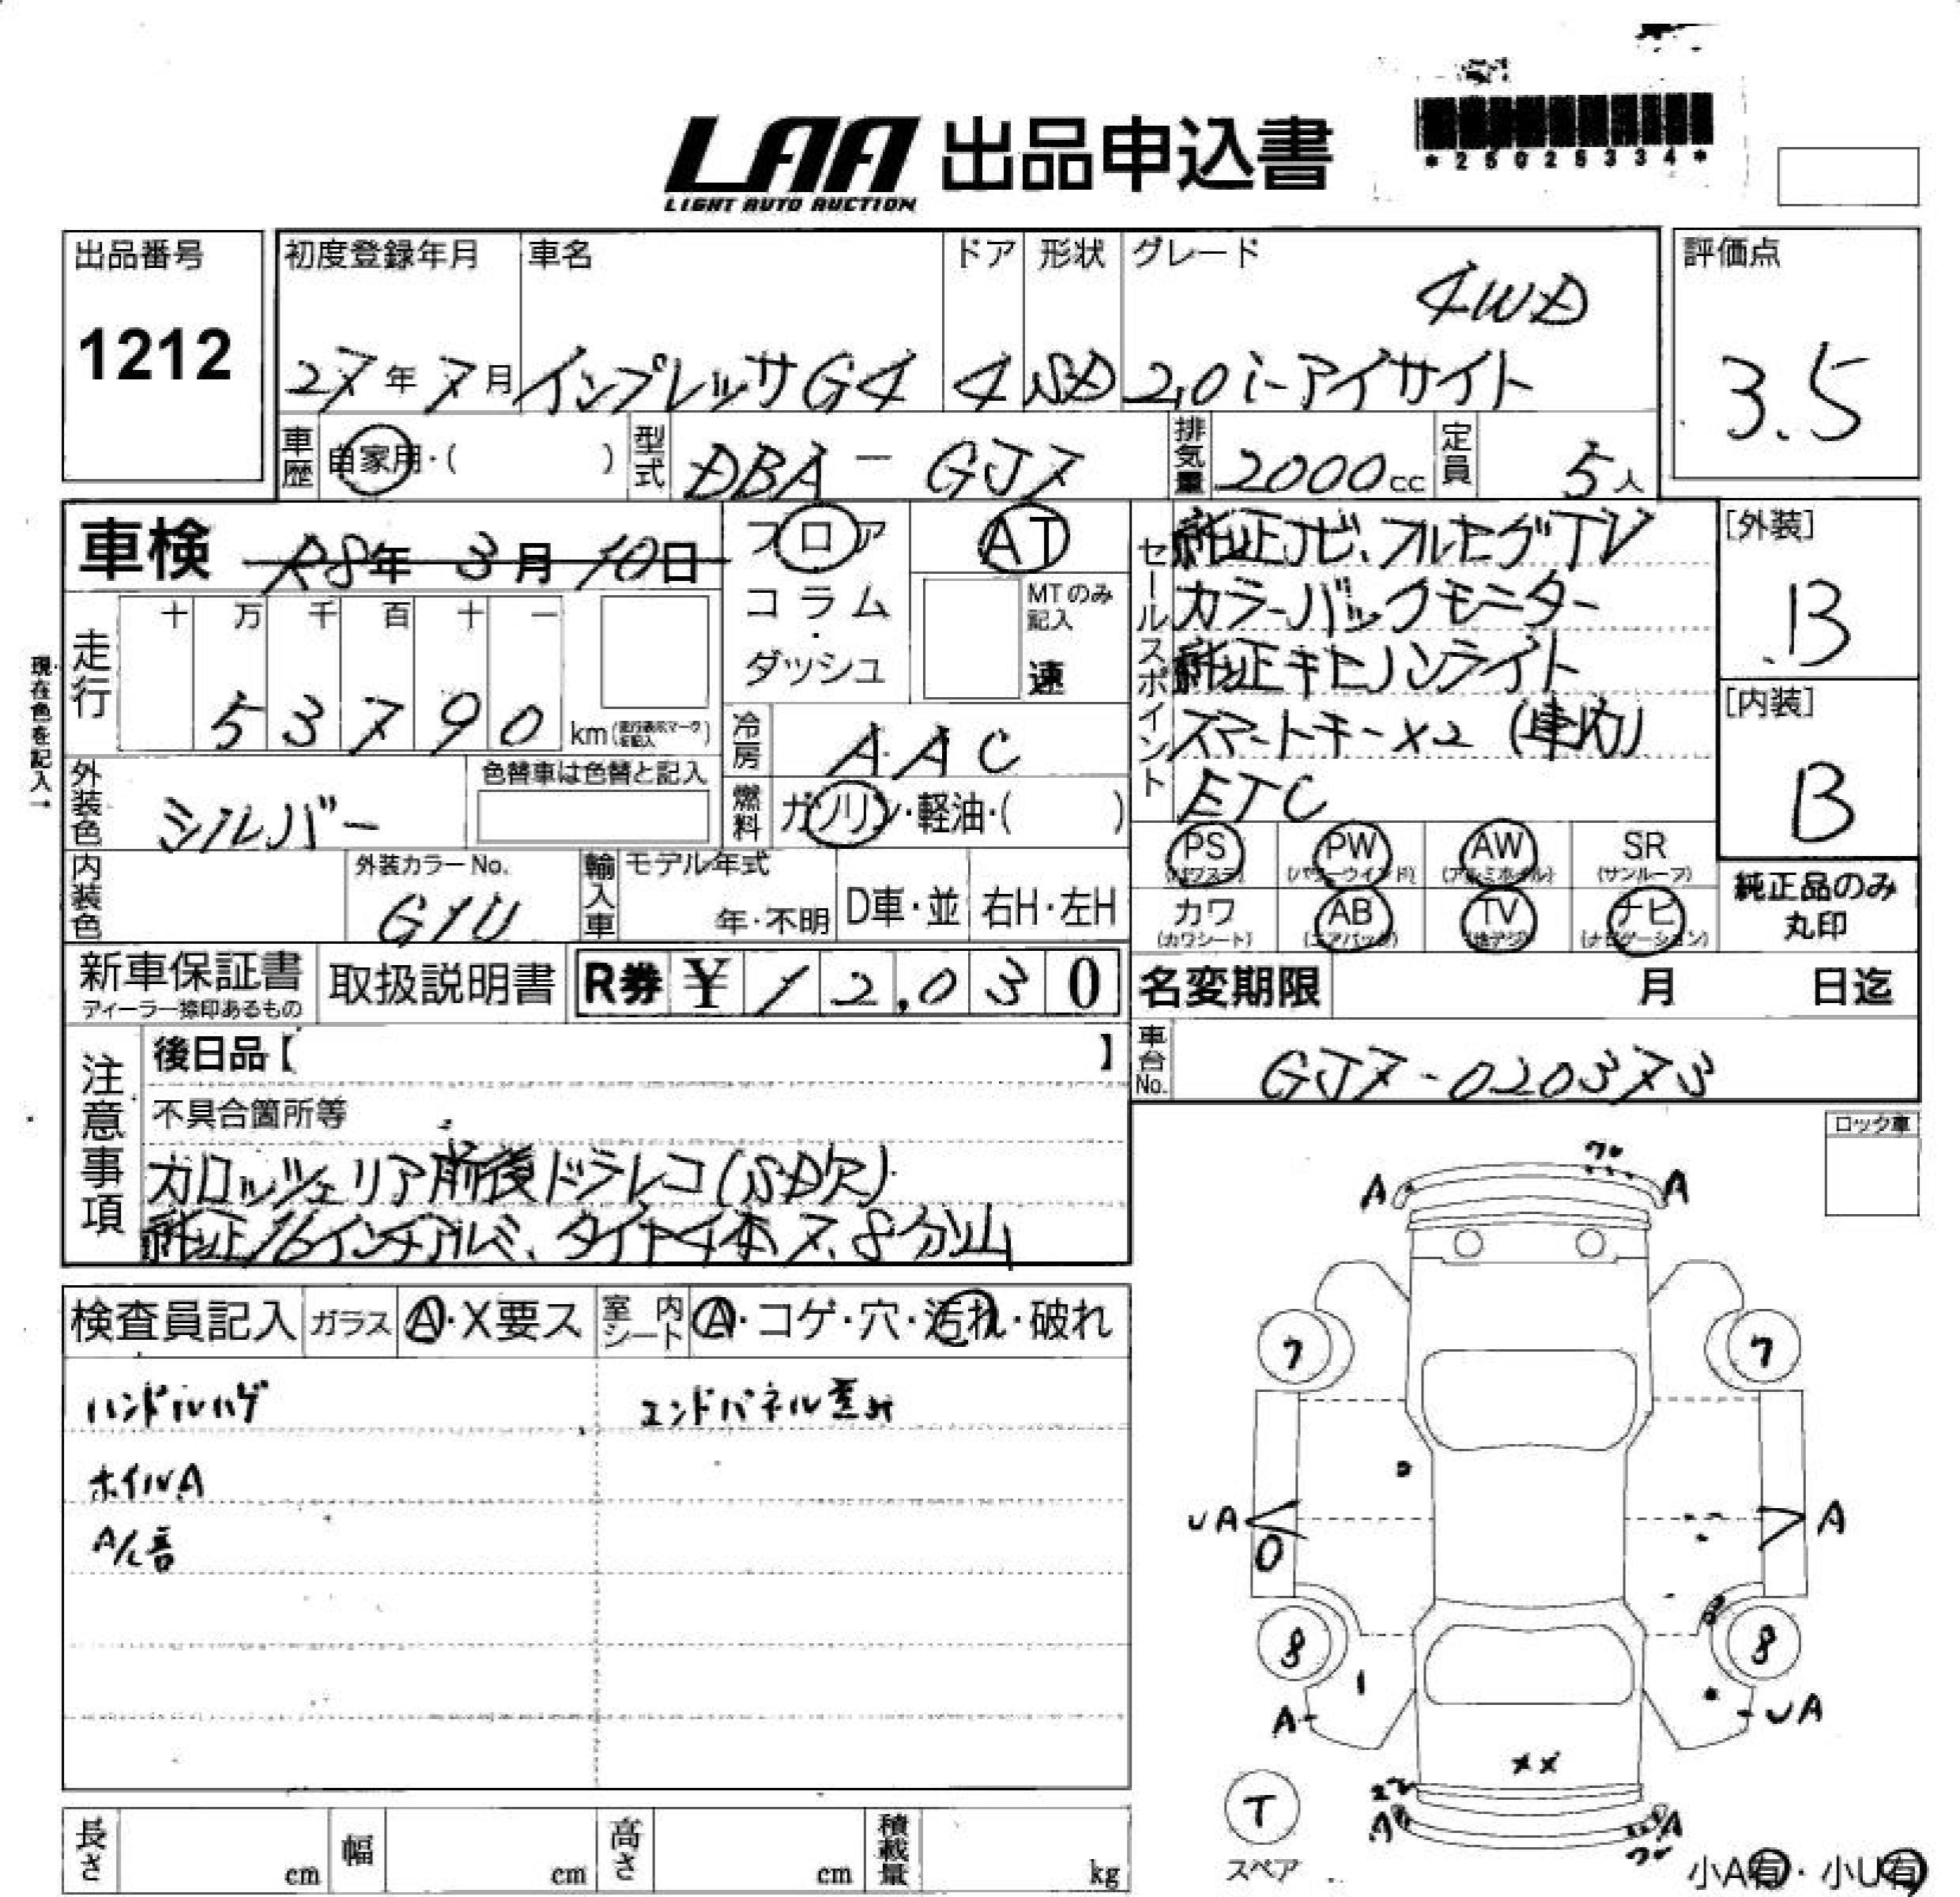 LAA 出品申込書
LIGHT AUTO AUCTION
*25025334*
出品番号
1212
初度登録年月
27年7月
車名
インプレッサG4
ドア
4
形状
SD
グレード
4WD
2.0i-アイサイト
評価点
3.5
車歴 自家用・( )
型式 DBA-GJ7
排気量 2000cc
定員 5人
車検 R8年3月10日
フロア
コラム
・
ダッシュ
AT
MTのみ記入
速
セールスポイント
純正ナビ、フルセグTV
カラーバックモニター
純正キセノンライト
スマートキー×2 (車内)
ETC
[外装]
B
[内装]
B
現在色を記入→
走行
十 万 千 百 十 一
5 3 7 9 0 km(走行表示マークを記入)
冷房 AAC
外装色 シルバー
色替車は色替と記入
燃料 ガソリン・軽油・( )
内装色
外装カラーNo.
G1U
輸入車
モデル年式
年・不明
D車・並
右H・左H
PS (パワステ)
PW (パワーウインド)
AW (アルミホイル)
SR (サンルーフ)
カワ (カワシート)
AB (エアバック)
TV (地デジ)
ナビ (ナビゲーション)
純正品のみ
丸印
新車保証書
ディーラー捺印あるもの
取扱説明書
R券 ¥12,030
名変期限 月 日迄
車台No. GJ7-020373
注意事項
後日品【 】
不具合箇所等
カロッツェリア前後ドラレコ(SD欠)
純正16インチアルミ、タイヤ4本7、8分山
ロック車
検査員記入
ガラス A・X要ス
室内シート A・コゲ・穴・汚れ・破れ
ハンドルハゲ
エンドパネル歪み
ホイルA
A/C音
A
A
7
7
UA
A
8
8
A
UA
××
T
スペア
A
小A有・小U有
長さ cm
幅 cm
高さ cm
積載量 kg